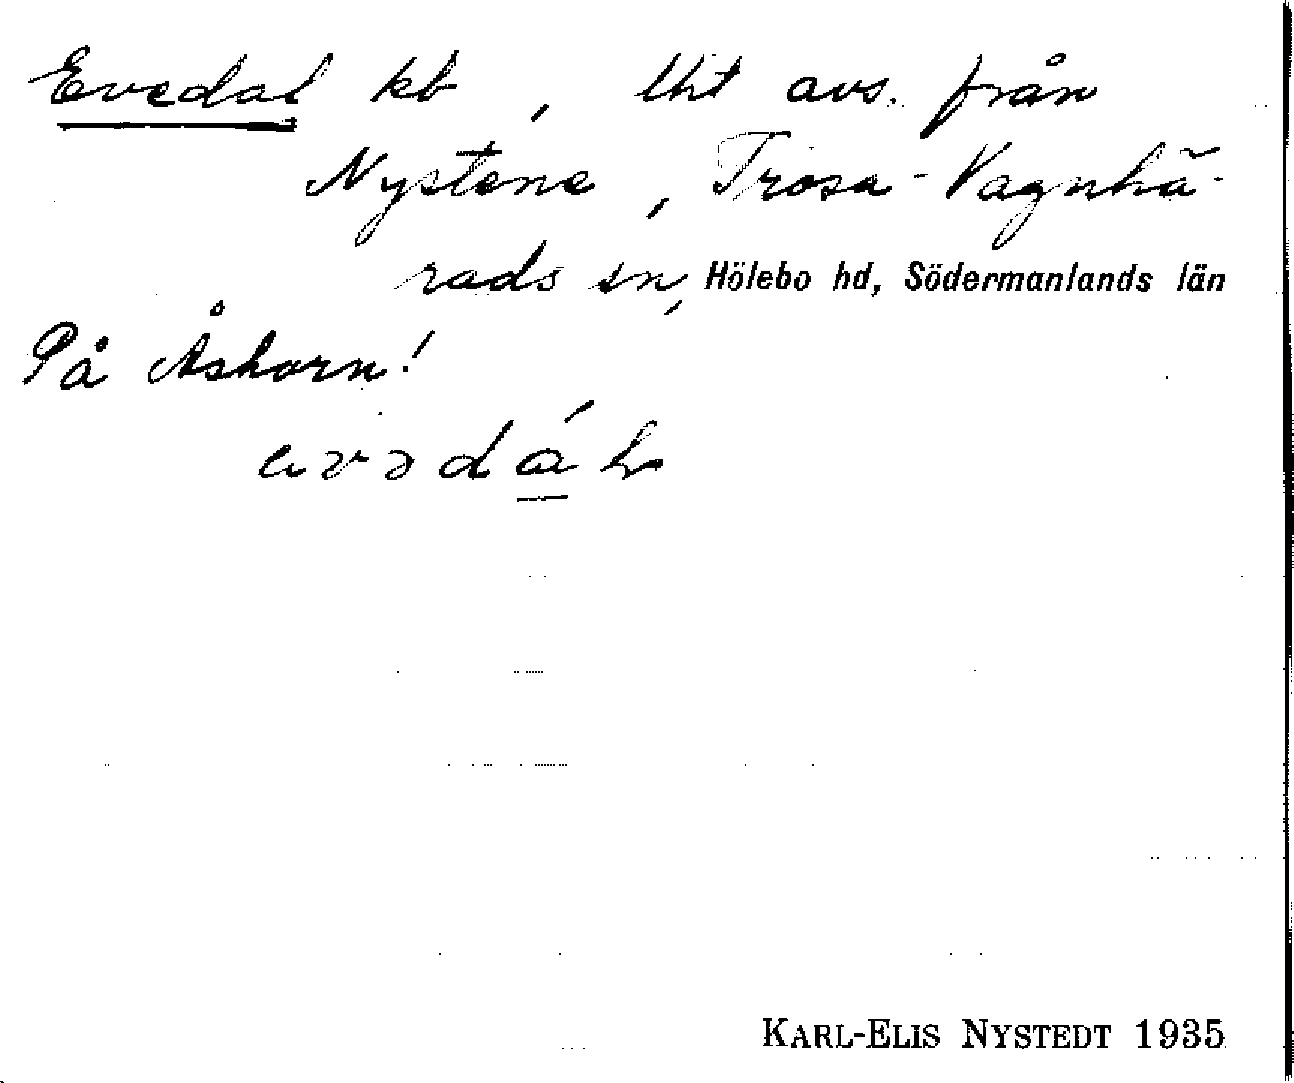 Evedal kb, lht avs. från
Nystene, Trosa-Vagnhä-
rads sn, Hölebo hd, Södermanlands län
På Åshorn!
KARL-ELIS NYSTEDT 1935